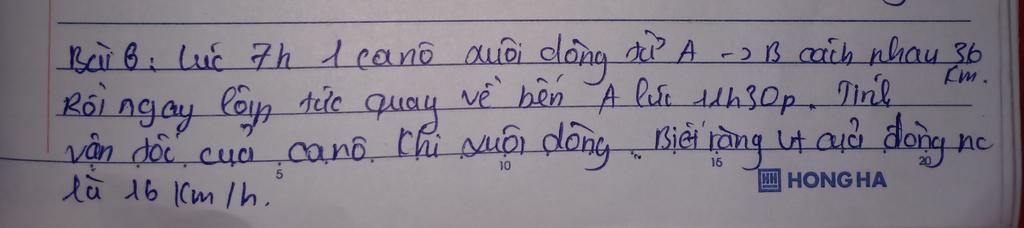 Bài 6: Lúc 7h 1 canô xuôi dòng từ A -> B cách nhau 36 Km.
Rồi ngay lập tức quay về bến A lúc 11h30p. Tính
vận tốc của canô khi xuôi dòng. Biết rằng vt của dòng nc
là 16 Km/h.
5 10 15 20
HH HONG HA